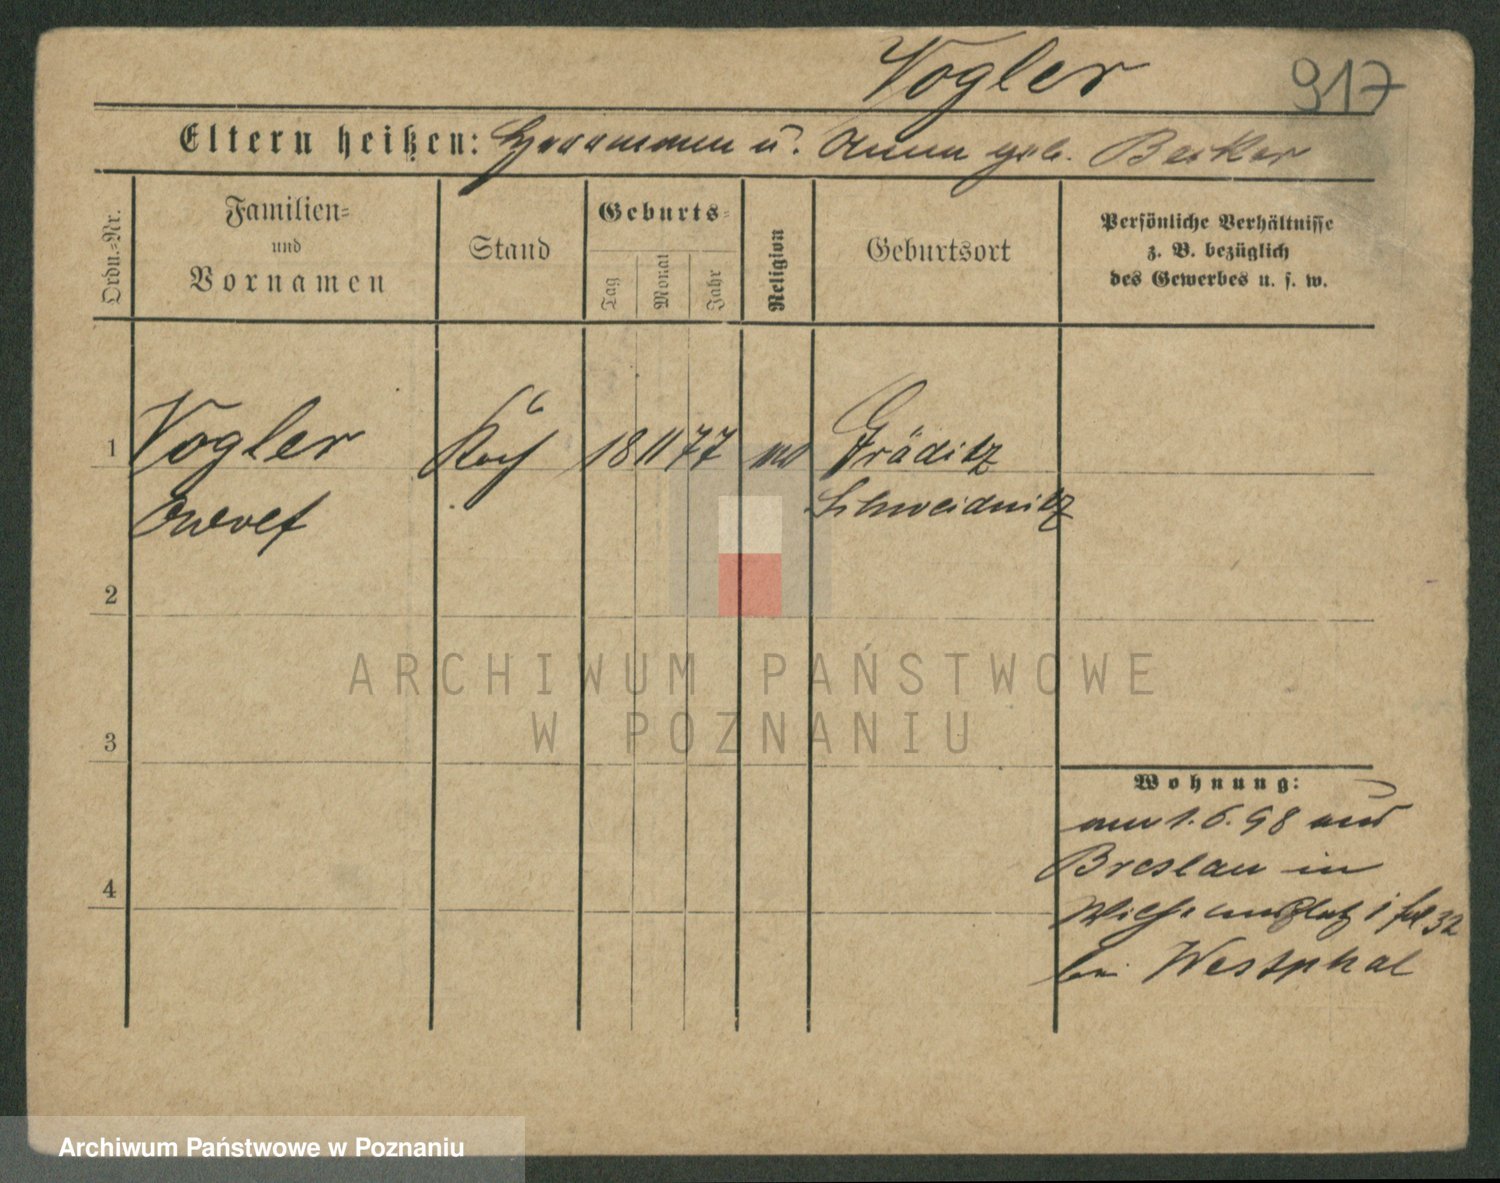 Vogler 917
Eltern heißen: Hermann u. Anna geb. Becker
Ordn.-Nr.
Familien-
und
Vornamen
Stand
Geburts-
Tag
Monat
Jahr
Religion
Geburtsort
Persönliche Verhältnisse
z. B. bezüglich
des Gewerbes u. s. w.
1 Vogler Koch 18 11 77 Gräditz
Schweidnitz
2
3
4
Wohnung:
am 1.6.98 aus
Breslau in
Wilhelmsplatz 1
bei Westphal
ARCHIWUM PAŃSTWOWE
W POZNANIU
Archiwum Państwowe w Poznaniu